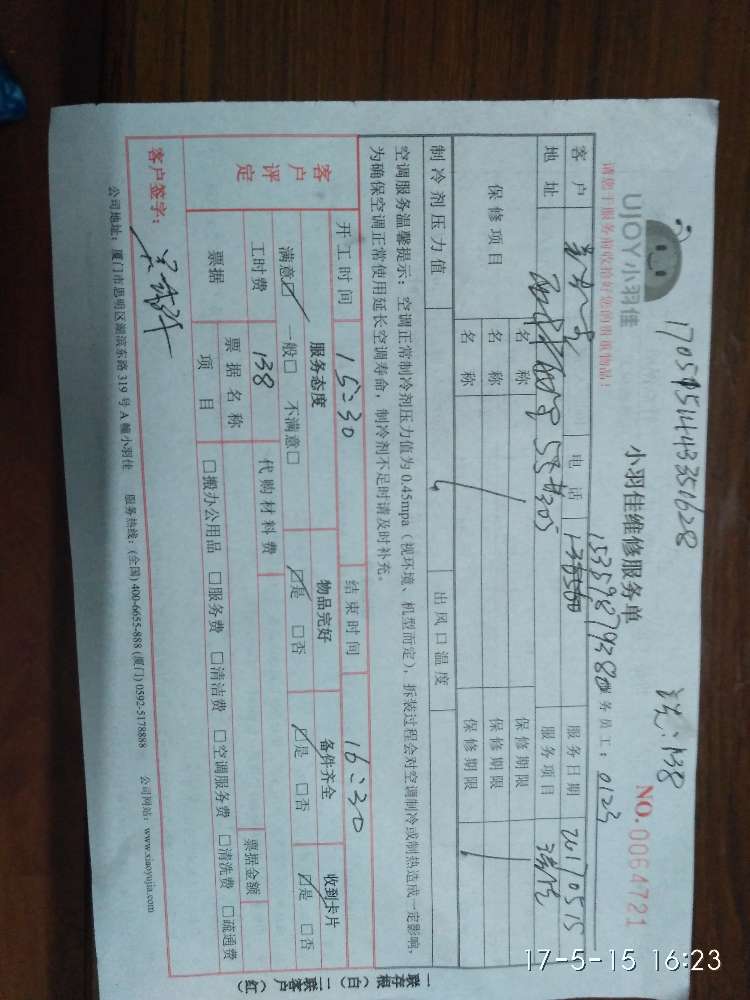 17051514433351628
UJOY小羽佳
小羽佳维修服务单
NO.0064721
请您于服务前收拾好您的贵重物品!
服务员工：0123
15359879380
客户
电话
服务日期 20170515
地址
服务项目 清洗
保修项目
名称
保修期限
名称
保修期限
名称
保修期限
制冷剂压力值
出风口温度
空调服务温馨提示：空调正常制冷剂压力值为0.45mpa（视环境、机型而定），拆装过程会对空调制冷或制热造成一定影响，
为确保空调正常使用延长空调寿命，制冷剂不足时请及时补充。
客户评定
开工时间 15:30
结束时间 16:30
服务态度
物品完好
备件齐全
收到卡片
满意☑ 一般□ 不满意□
☑是 □否
☑是 □否
☑是 □否
工时费 138
代购材料费
票据
票据名称
票据金额
项目
□搬办公用品 □服务费 □清洁费 □空调服务费 □清洗费 □疏通费
客户签字：
公司地址：厦门市思明区湖滨东路319号A幢小羽佳 服务热线：(全国) 400-6655-888 (厦门) 0592-5178888 公司网站：www.xiaoyujia.com
一联存根（白） 二联客户（红）
17-5-15 16:23